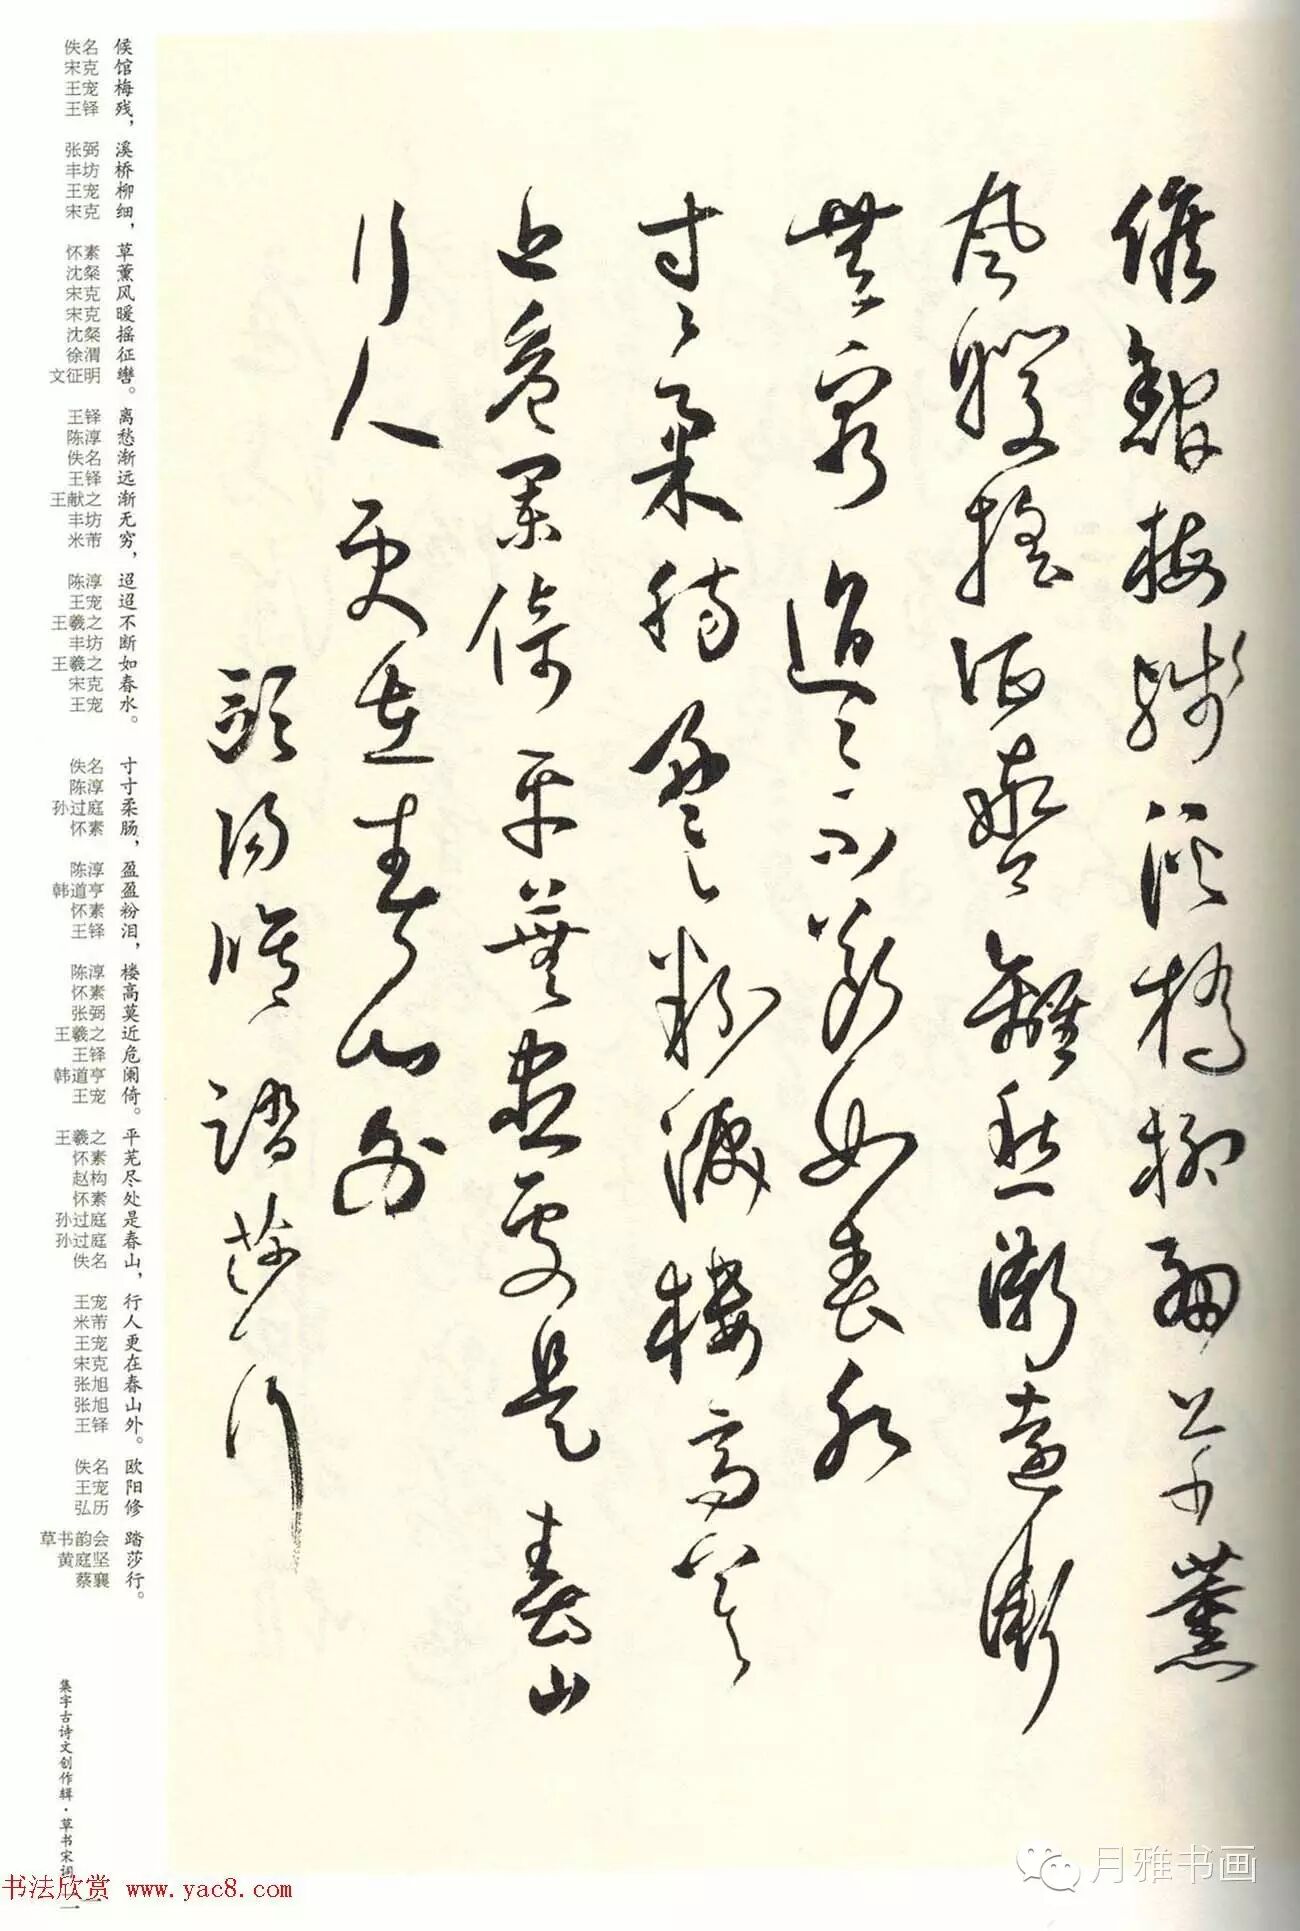 候館梅殘溪橋柳細草薰
風暖搖征轡離愁漸遠漸
無窮迢々不斷如春水
寸々柔腸盈々粉淚樓高莫
近危闌倚平蕪盡處是春山
行人更在春山外
歐陽脩踏莎行
佚名 候
宋克 馆
王宠 梅
王铎 残，
张弼 溪
丰坊 桥
王宠 柳
宋克 细，
怀素 草
沈粲 薰
宋克 风
宋克 暖
沈粲 摇
徐渭 征
文征明 辔。
王铎 离
陈淳 愁
佚名 渐
王铎 远
王献之 渐
丰坊 无
米芾 穷，
陈淳 迢
王宠 迢
王羲之 不
丰坊 断
王羲之 如
宋克 春
王宠 水。
佚名 寸
陈淳 寸
孙过庭 柔
怀素 肠，
陈淳 盈
韩道亨 盈
怀素 粉
王铎 泪，
陈淳 楼
怀素 高
张弼 莫
王羲之 近
王铎 危
韩道亨 阑
王宠 倚。
王羲之 平
怀素 芜
赵构 尽
怀素 处
孙过庭 是
孙过庭 春
佚名 山，
王宠 行
米芾 人
王宠 更
宋克 在
张旭 春
张旭 山
王铎 外。
佚名 欧
王宠 阳
弘历 修
草书韵会 踏
黄庭坚 莎
蔡襄 行。
集字古诗文创作辑·草书宋词
二一
书法欣赏 www.yac8.com
月雅书画